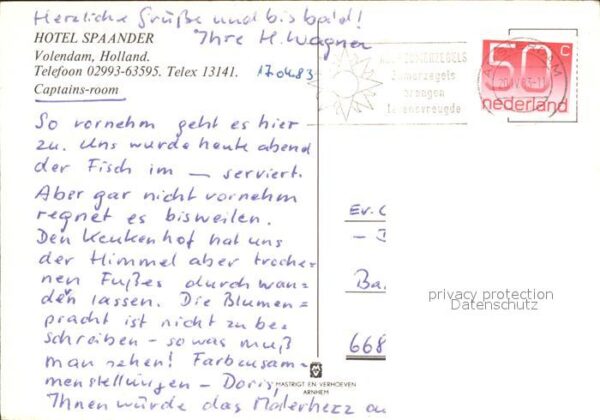 Herzliche Grüße und bis bald!
Ihre H. Wagner
HOTEL SPAANDER
Volendam, Holland.
Telefoon 02993-63595. Telex 13141.
17.04.83
Captains-room
So vornehm geht es hier
zu. Uns wurde heute abend
der Fisch im — serviert.
Aber gar nicht vornehm
regnet es bisweilen.
Den Keukenhof hat uns
der Himmel aber trocke-
nen Fußes durchwan-
dern lassen. Die Blumen-
pracht ist nicht zu be-
schreiben – so was muß
man sehen! Farbensam-
menstellungen – Doris,
Ihnen würde das Malerherz
MASTRIGT EN VERHOEVEN
ARNHEM
Zomerzegels
brengen
levensvreugde
50 c
nederland
Ev.
Ba
668
privacy protection
Datenschutz